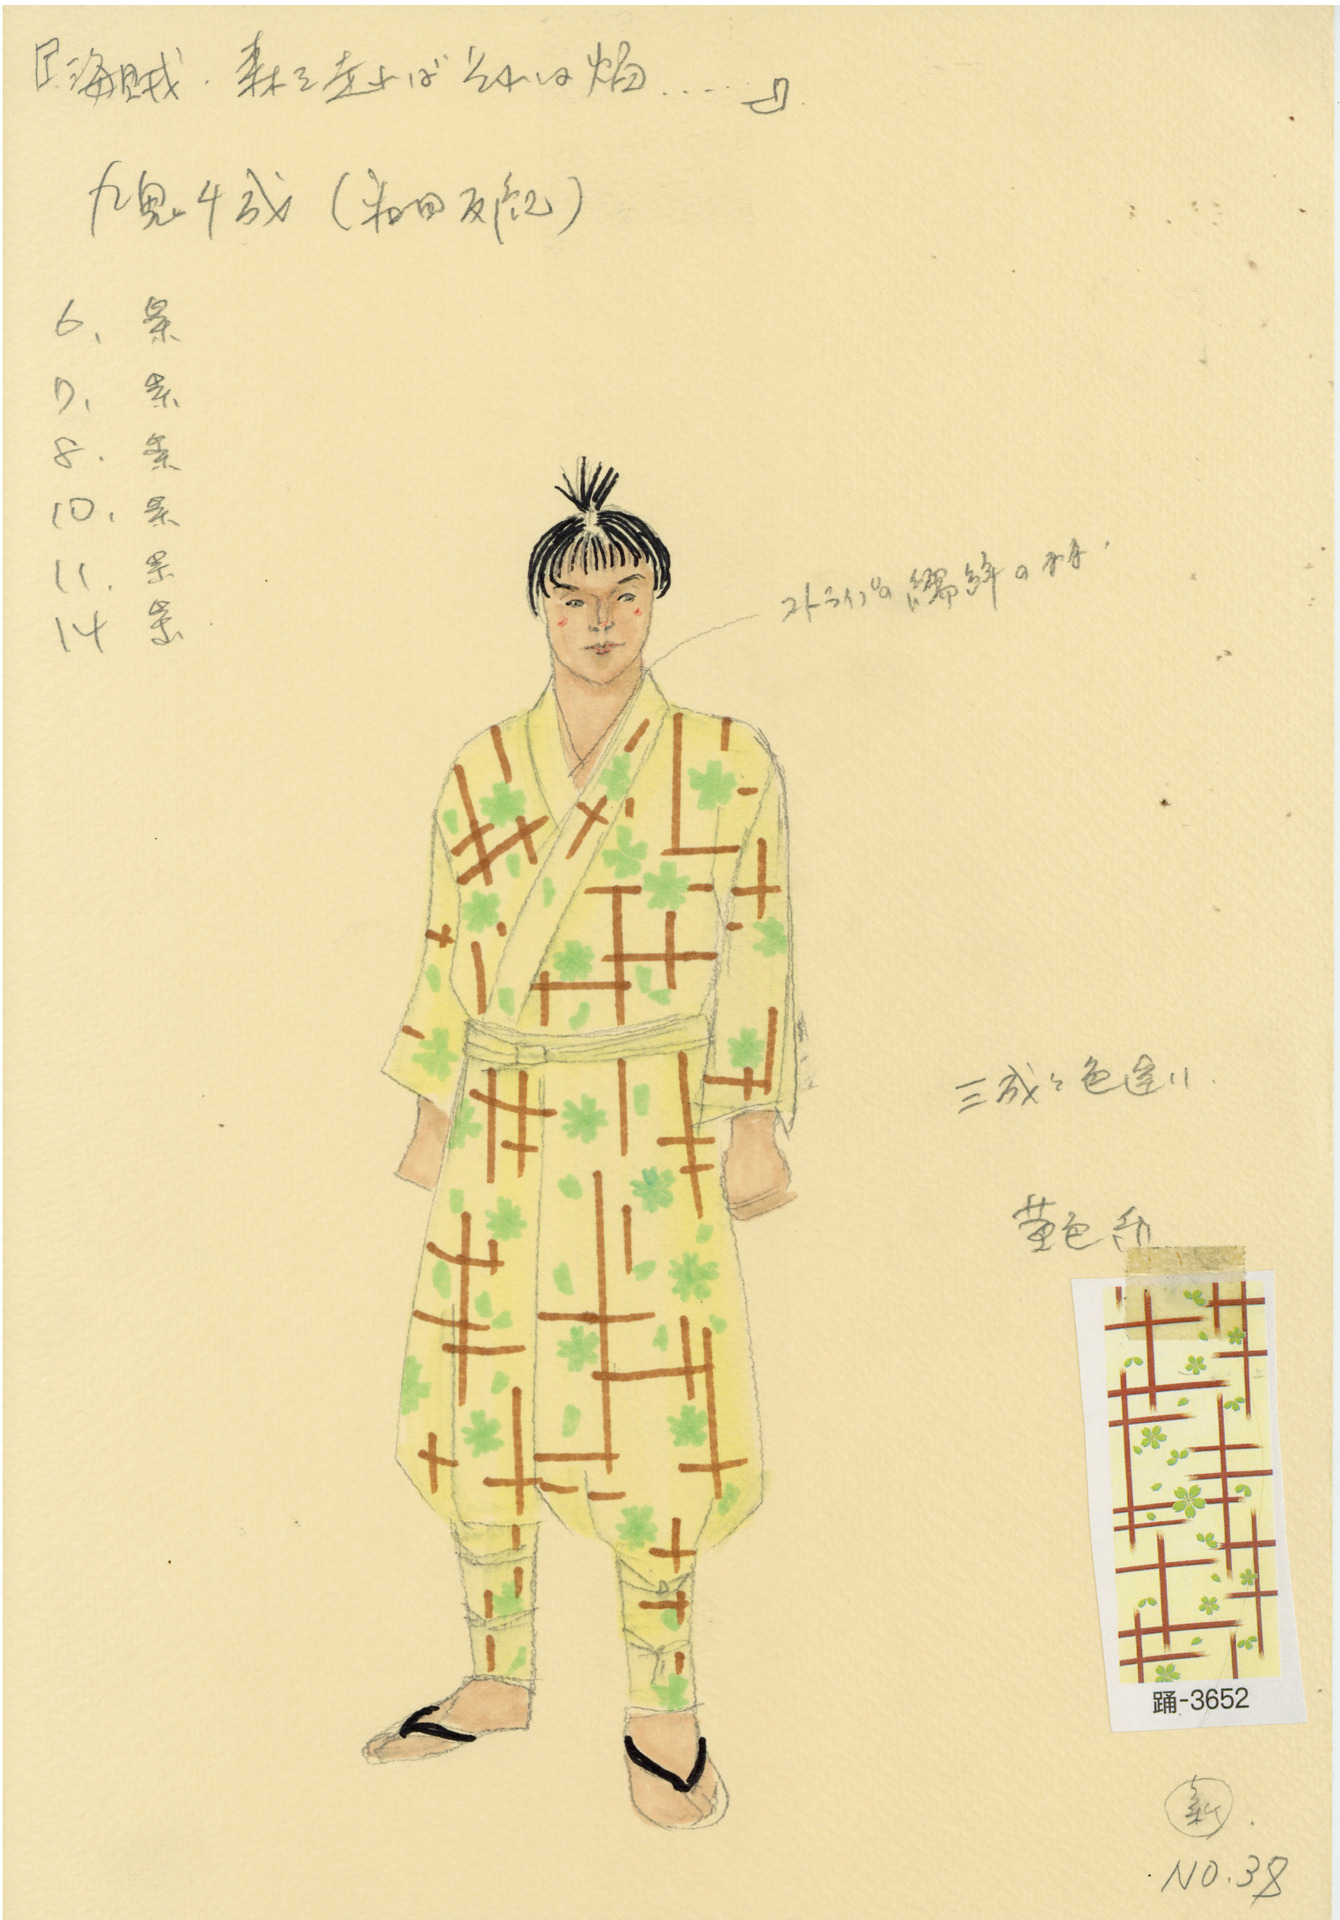 『海賊、森を走ればそれは焔.....』
九鬼4成（
6、景
7、景
8、景
10、景
11、景
14 景
ストライプの襦袢の
三成と色違い
黄色
踊-3652
新
NO.38